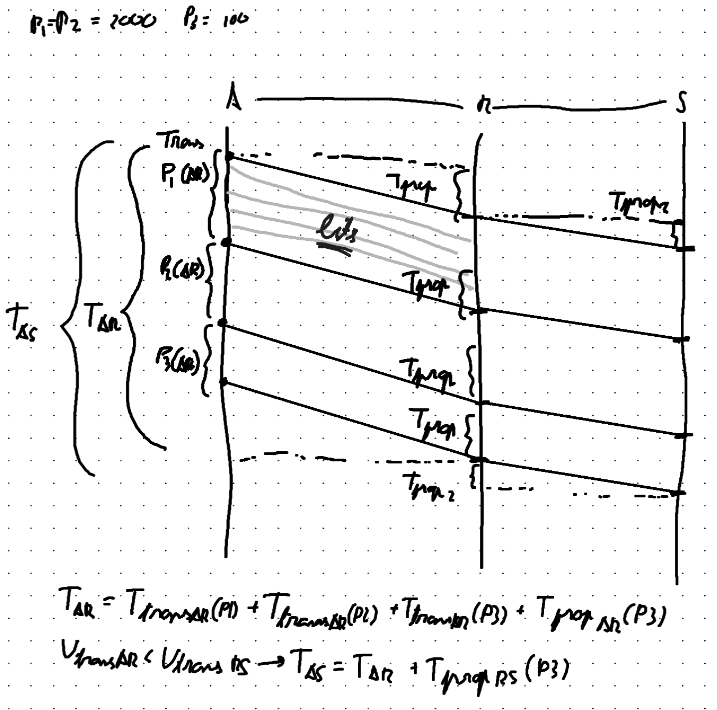 P₁=P₂ = 2000 P₃ = 100
A R S
Trans
P₁(AR)
Tprop
Tprop₂
bits
P₂(AR)
Tprop
T_AS T_AR
P₃(AR)
Tprop
Tprop
Tprop₂
T_AR = T_transAR(P1) + T_transAR(P2) + T_transAR(P3) + T_prop_AR(P3)
V_transAR < V_trans RS → T_AS = T_AR + T_prop RS(P3)